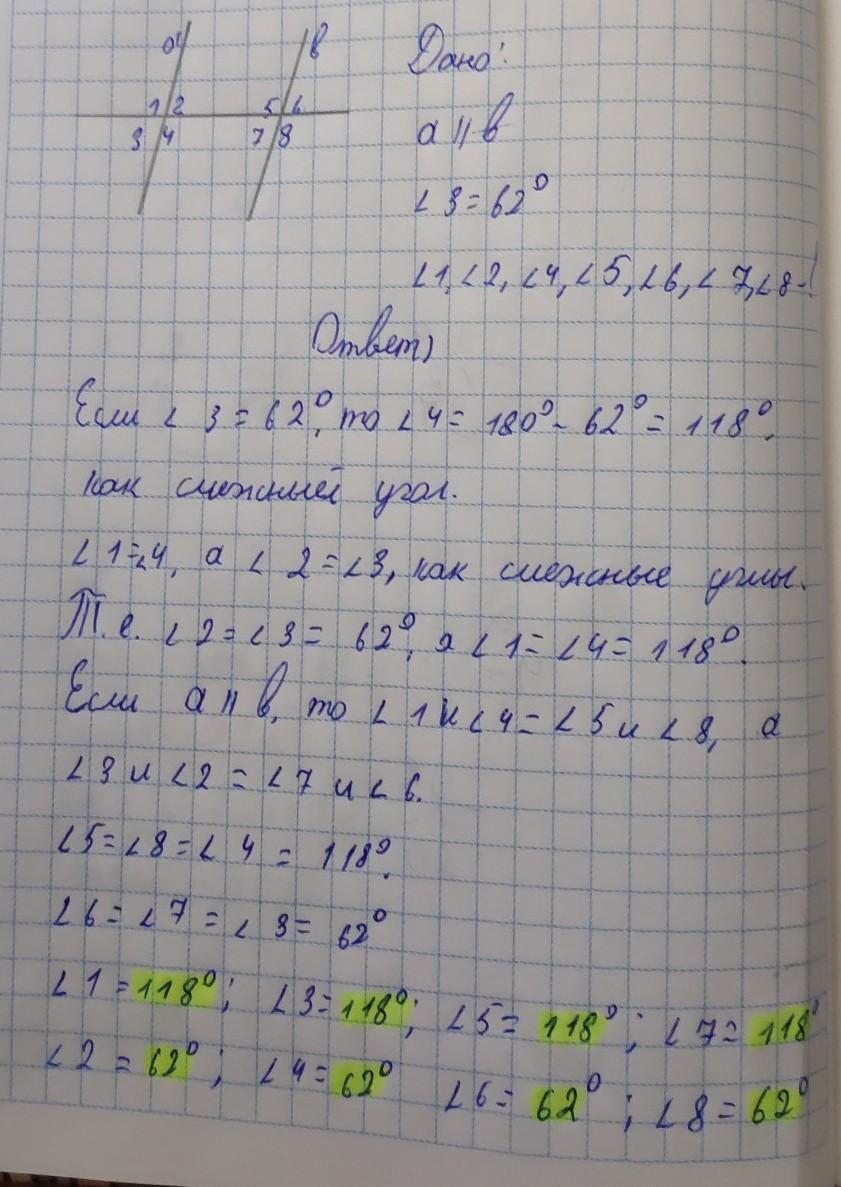 a
в
1 2
5 6
3 4
7 8
Дано:
a || в
∠3 = 62°
∠1, ∠2, ∠4, ∠5, ∠6, ∠7, ∠8 -!
Ответ)
Если ∠3 = 62°, то ∠4 = 180° - 62° = 118°,
как смежный угол.
∠1=∠4, а ∠2=∠3, как смежные углы.
Т.е. ∠2=∠3= 62°, а ∠1=∠4= 118°.
Если a || в, то ∠1 и ∠4=∠5 и ∠8, а
∠3 и ∠2 = ∠7 и ∠6.
∠5=∠8=∠4 = 118°.
∠6=∠7=∠3= 62°
∠1=118°; ∠3=118°; ∠5= 118°; ∠7= 118°
∠2 = 62°; ∠4=62° ∠6= 62°; ∠8=62°